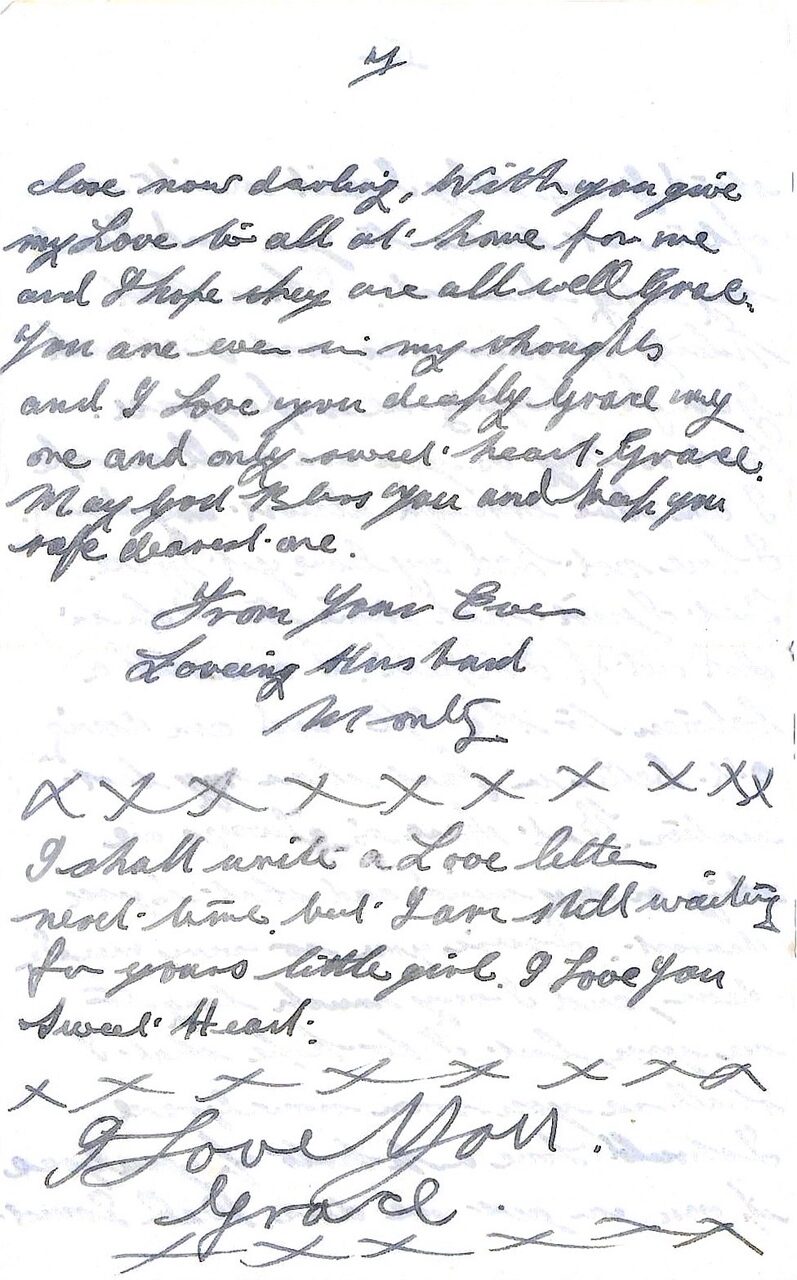 7
close now darling, With you give
my Love to all at home for me
and I hope they are all well Grace.
You are ever in my thoughts
and I Love you deeply Grace my
one and only sweet heart Grace.
May God Bless You and keep you
safe dearest one.
From Your Ever
Loveing Husband
Monty
X X X X X X X X X X X
I shall write a Love letter
next time but I am still waiting
for yours little girl. I Love You
Sweet Heart.
X X X X X X X X X
I Love You.
Grace.
X X X X X X